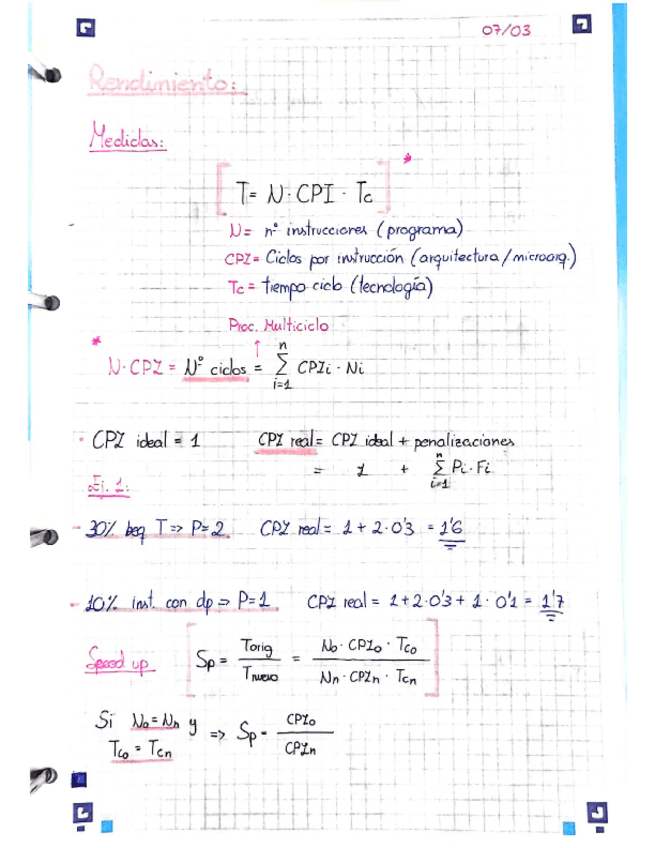 07/03
Rendimiento:
Medidas:
[T= N·CPI · Tc] *
N= nº instrucciones (programa)
CPI= Ciclos por instrucción (arquitectura/microarq.)
Tc= tiempo ciclo (tecnología)
Proc. Multiciclo
↑
* N·CPI = Nº ciclos = n Σ i=1 CPIi · Ni
· CPI ideal = 1 CPI real= CPI ideal + penalizaciones
= 1 + n Σ i=1 Pi·Fi
Ej. 1:
- 30% beq T => P=2. CPI real = 1+2·0'3 = 1'6
- 10% inst. con dp => P=1. CPI real = 1+2·0'3 + 1·0'1 = 1'7
Speed up [Sp = Torig / Tnuevo = No·CPIo·Tco / Nn·CPIn·Tcn]
Si No=Nn y
Tco = Tcn => Sp= CPIo / CPIn